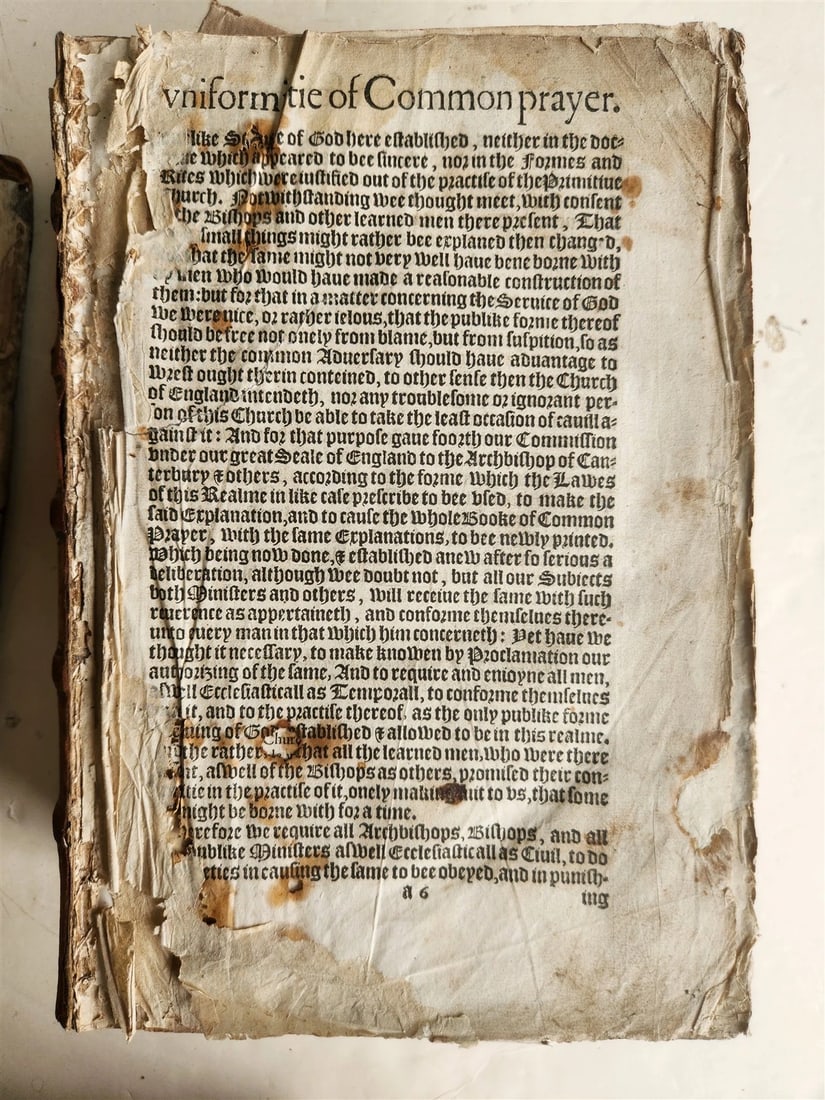 vniformitie of Common prayer.
like State of God here established, neither in the doc-
which appeared to bee sincere, nor in the Formes and
Rites which were iustified out of the practise of the Primitiue
hurch. Notwithstanding wee thought meet, with consent
the Bishops and other learned men there present, That
small things might rather bee explaned then changed,
hat the same might not very well haue bene borne with
men who would haue made a reasonable construction of
them: but for that in a matter concerning the Seruice of God
we were nice, or rather ielous, that the publike forme thereof
should be free not onely from blame, but from suspition, so as
neither the common Aduersary should haue aduantage to
wrest ought therin conteined, to other sense then the Church
of England intendeth, nor any troublesome or ignorant per-
on of this Church be able to take the least occasion of cauill a-
gainst it: And for that purpose gaue foorth our Commission
vnder our great Seale of England to the Archbishop of Can-
terbury & others, according to the forme which the Lawes
of this Realme in like case prescribe to bee vsed, to make the
said Explanation, and to cause the whole Booke of Common
Prayer, with the same Explanations, to bee newly printed.
Which being now done, & established anew after so serious a
deliberation, although wee doubt not, but all our Subiects
both Ministers and others, will receiue the same with such
reuerence as appertaineth, and conforme themselues there-
unto euery man in that which him concerneth: Yet haue we
thought it necessary, to make knowen by Proclamation our
authorizing of the same, And to require and enioyne all men,
aswell Ecclesiasticall as Temporall, to conforme themselues
it, and to the practise thereof, as the only publike forme
uing of God established & allowed to be in this realme.
the rather, that all the learned men, who were there
nt, aswell of the Bishops as others, promised their con-
itie in the practise of it, onely making suit to vs, that some
might be borne with for a time.
erefore we require all Archbishops, Bishops, and all
publike Ministers aswell Ecclesiasticall as Ciuil, to do
eties in causing the same to bee obeyed, and in punish-
a 6 ing